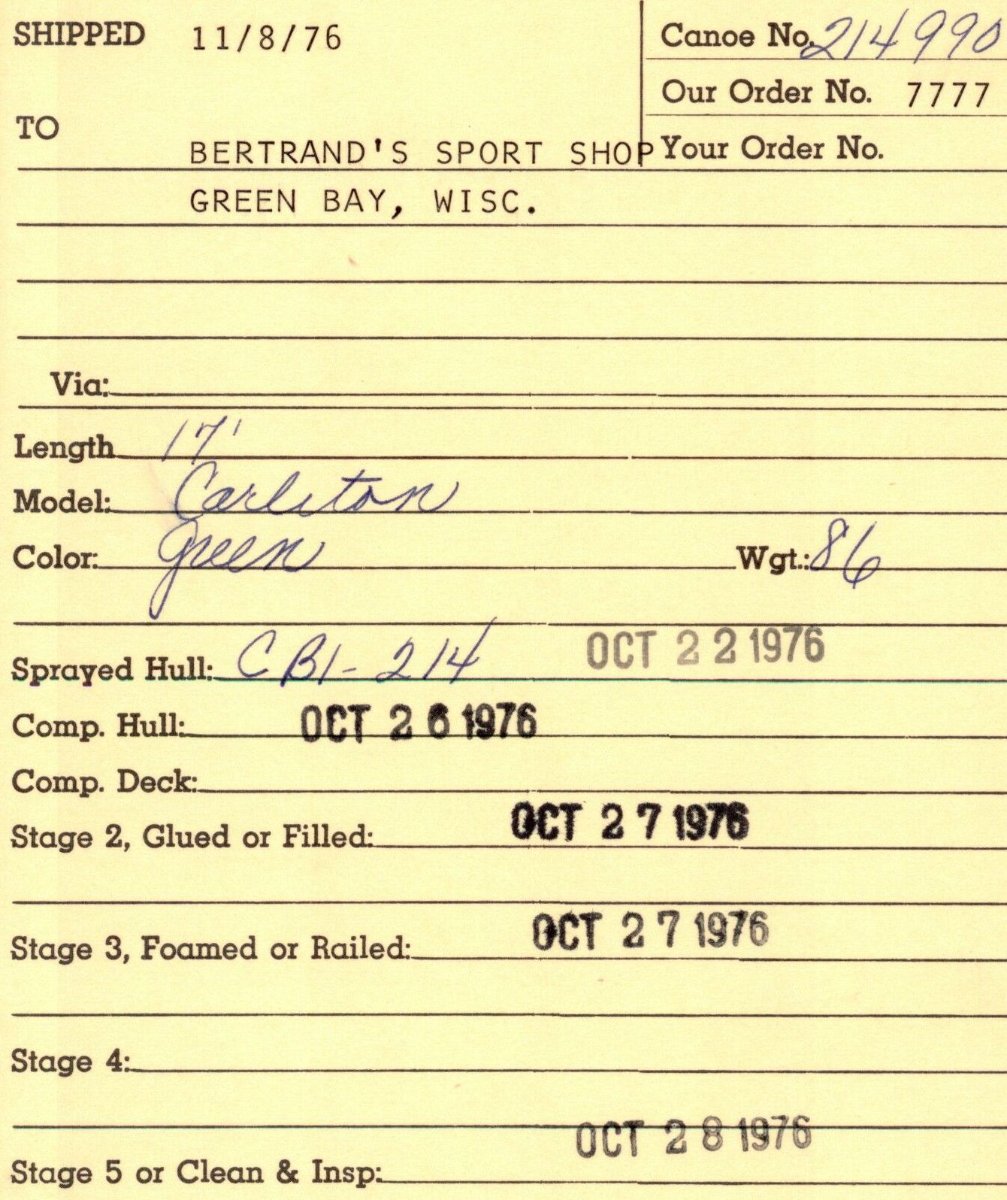 SHIPPED 11/8/76
Canoe No. 214990
Our Order No. 7777
TO
BERTRAND'S SPORT SHOP
Your Order No.
GREEN BAY, WISC.
Via:
Length 17'
Model: Carleton
Color: Green Wgt.: 86
Sprayed Hull: CB1-214 OCT 22 1976
Comp. Hull: OCT 26 1976
Comp. Deck:
Stage 2, Glued or Filled: OCT 27 1976
Stage 3, Foamed or Railed: OCT 27 1976
Stage 4:
OCT 28 1976
Stage 5 or Clean & Insp: